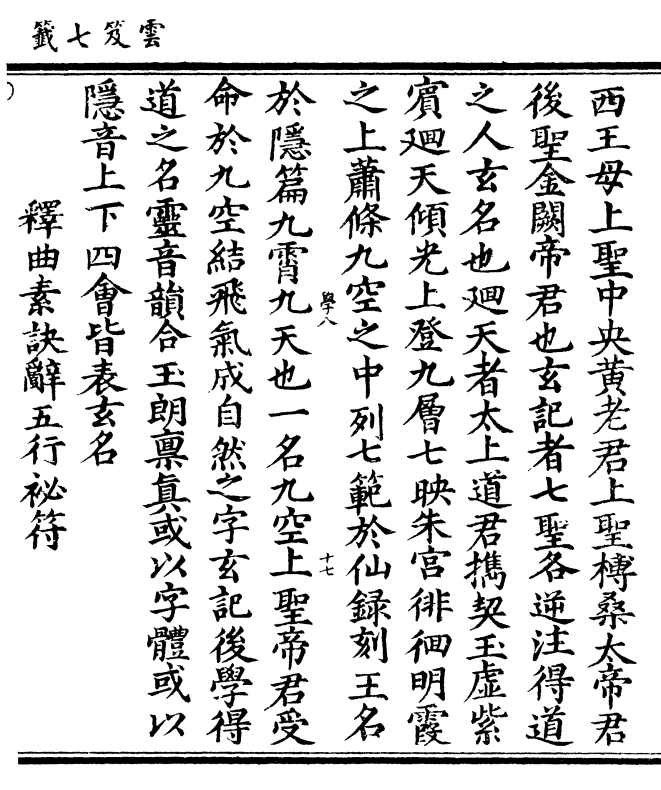 雲笈七籤
西王母上聖中央黃老君上聖榑桑太帝君
後聖金闕帝君也玄記者七聖各逆注得道
之人玄名也廻天者太上道君擕契玉虛紫
賓廻天傾光上登九層七映朱宮徘徊明霞
之上蕭條九空之中列七範於仙録刻王名
學八
十七
於隱篇九霄九天也一名九空上聖帝君受
命於九空結飛氣成自然之字玄記後學得
道之名靈音韻合玉朗禀眞或以字體或以
隱音上下四會皆表玄名
釋曲素訣辭五行祕符